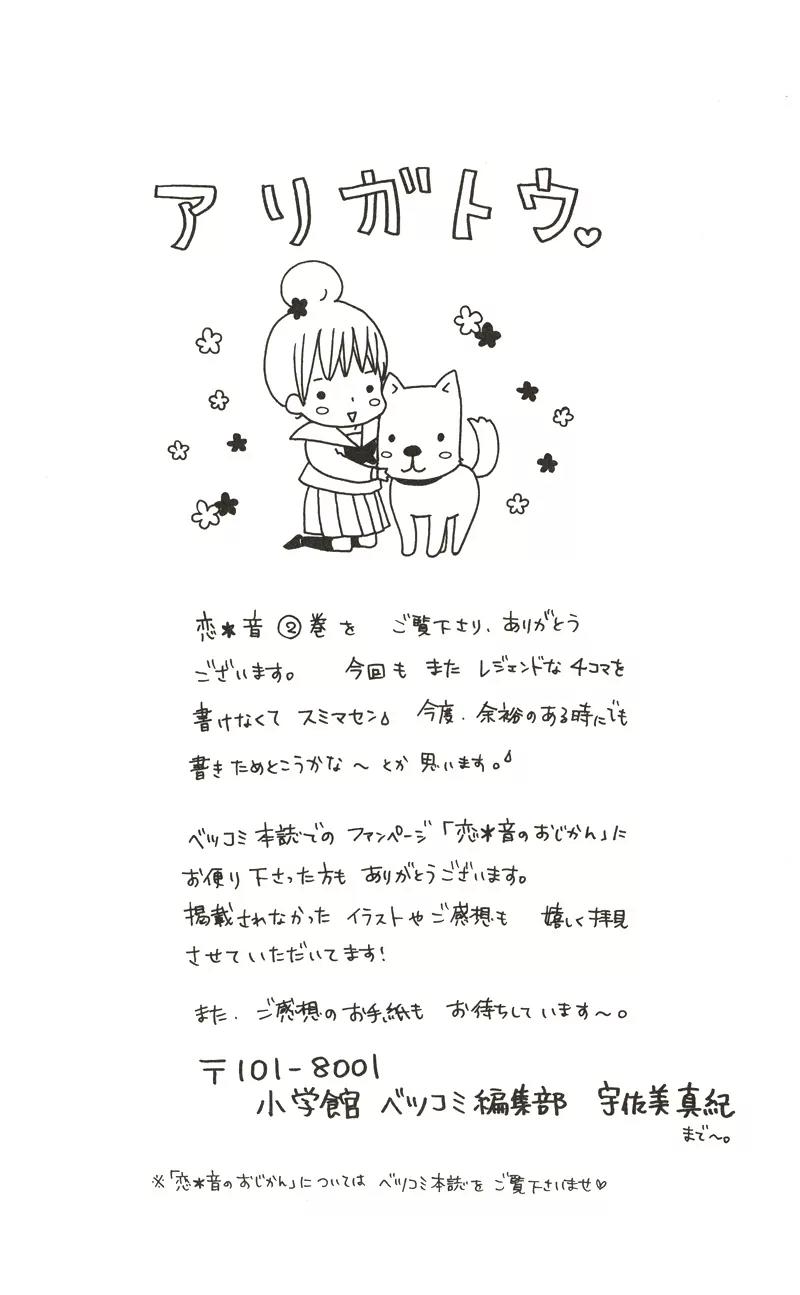 アリガトウ♡
恋*音②巻を ご覧下さり、ありがとう
ございます。 今回も また レジェンドな 4コマを
書けなくて スミマセン 今度、余裕のある時にでも
書きためとこうかな〜 とか 思います。
ベツコミ本誌での ファンページ「恋*音のおじかん」に
お便り下さった方も ありがとうございます。
掲載されなかった イラストやご感想も 嬉しく拝見
させていただいてます!
また、ご感想のお手紙も お待ちしています〜。
〒101-8001
小学館 ベツコミ編集部 宇佐美真紀
まで〜。
※「恋*音のおじかん」については ベツコミ本誌を ご覧下さいませ♡